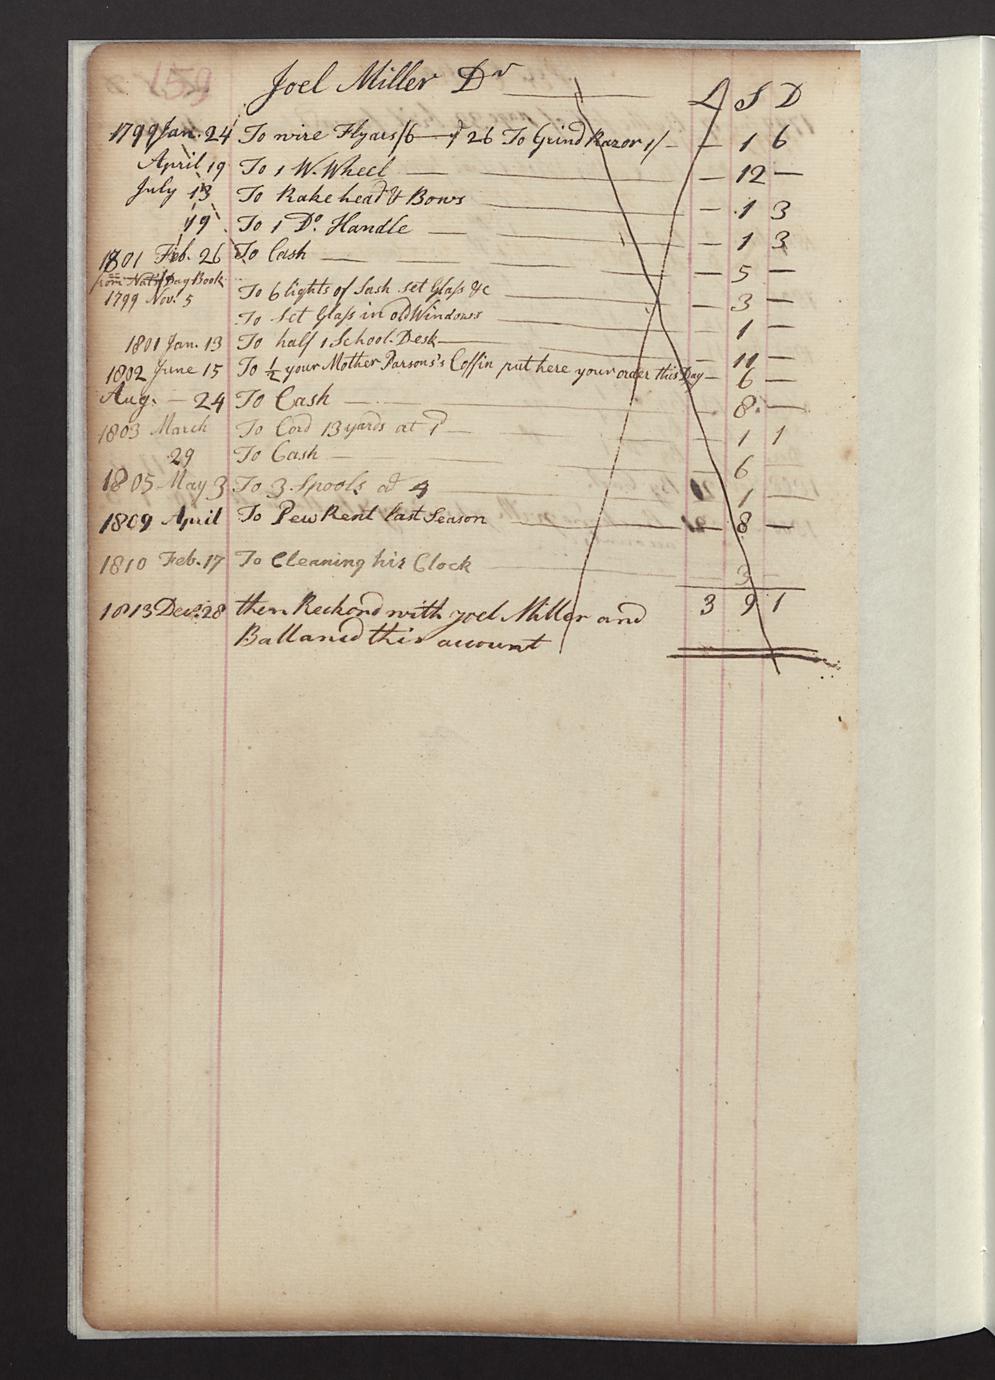 159
Joel Miller Dr
£ S D
1799 Jan. 24 To wire Flyars /6 — 26 To Grind Razor 1/ — 1 6
April 19 To 1 W. Wheel — 12 —
July 13 To Rake head & Bows — 1 3
19 To 1 Do. Handle — 1 3
1801 Feb. 26 To Cash — 5 —
from Day Book
1799 Nov. 5 To 6 lights of Sash set Glass &c — 3 —
To Set Glass in old Windows 1 —
1801 Jan. 13 To half 1 School Desk — 11 —
1802 June 15 To ½ your Mother Parsons's Coffin put here your order this Day — 6 —
Aug. — 24 To Cash — 8 —
1803 March To Cord 13 yards at 1d 1 1
29 To Cash — 6
1805 May 3 To 3 Spools at 4 1 —
1809 April To Pew Rent last Season — 8 —
1810 Feb. 17 To Cleaning his Clock 3
3 9 1
1813 Dec. 28 then Reckond with Joel Miller and
Ballancd this account